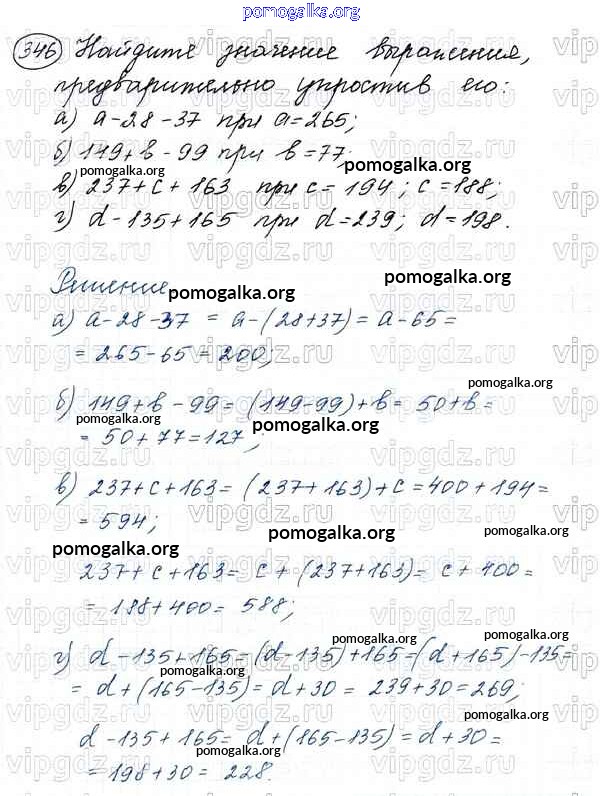 pomogalka.org
346 Найдите значение выражения,
предварительно упростив его:
а) a-28-37 при a=265;
б) 149+b-99 при b=77;
pomogalka.org
в) 237+c+163 при c=194; c=188;
г) d-135+165 при d=239; d=198.
Решение
pomogalka.org pomogalka.org
а) a-28-37 = a-(28+37)= a-65=
= 265-65=200;
pomogalka.org
б) 149+b-99= (149-99)+b= 50+b=
pomogalka.org pomogalka.org
= 50+77=127;
в) 237+c+163= (237+163)+c=400+194=
= 594;
pomogalka.org
pomogalka.org
237+c+163= c+(237+163)= c+400=
= 188+400= 588;
pomogalka.org
г) d-135+165=(d-135)+165=(d+165)-135=
= d+(165-135)= d+30 = 239+30=269;
pomogalka.org
d-135+165= d+(165-135)=d+30=
pomogalka.org
= 198+30= 228.
pomogalka.org
vipgdz.ru vipgdz.ru vipgdz.ru